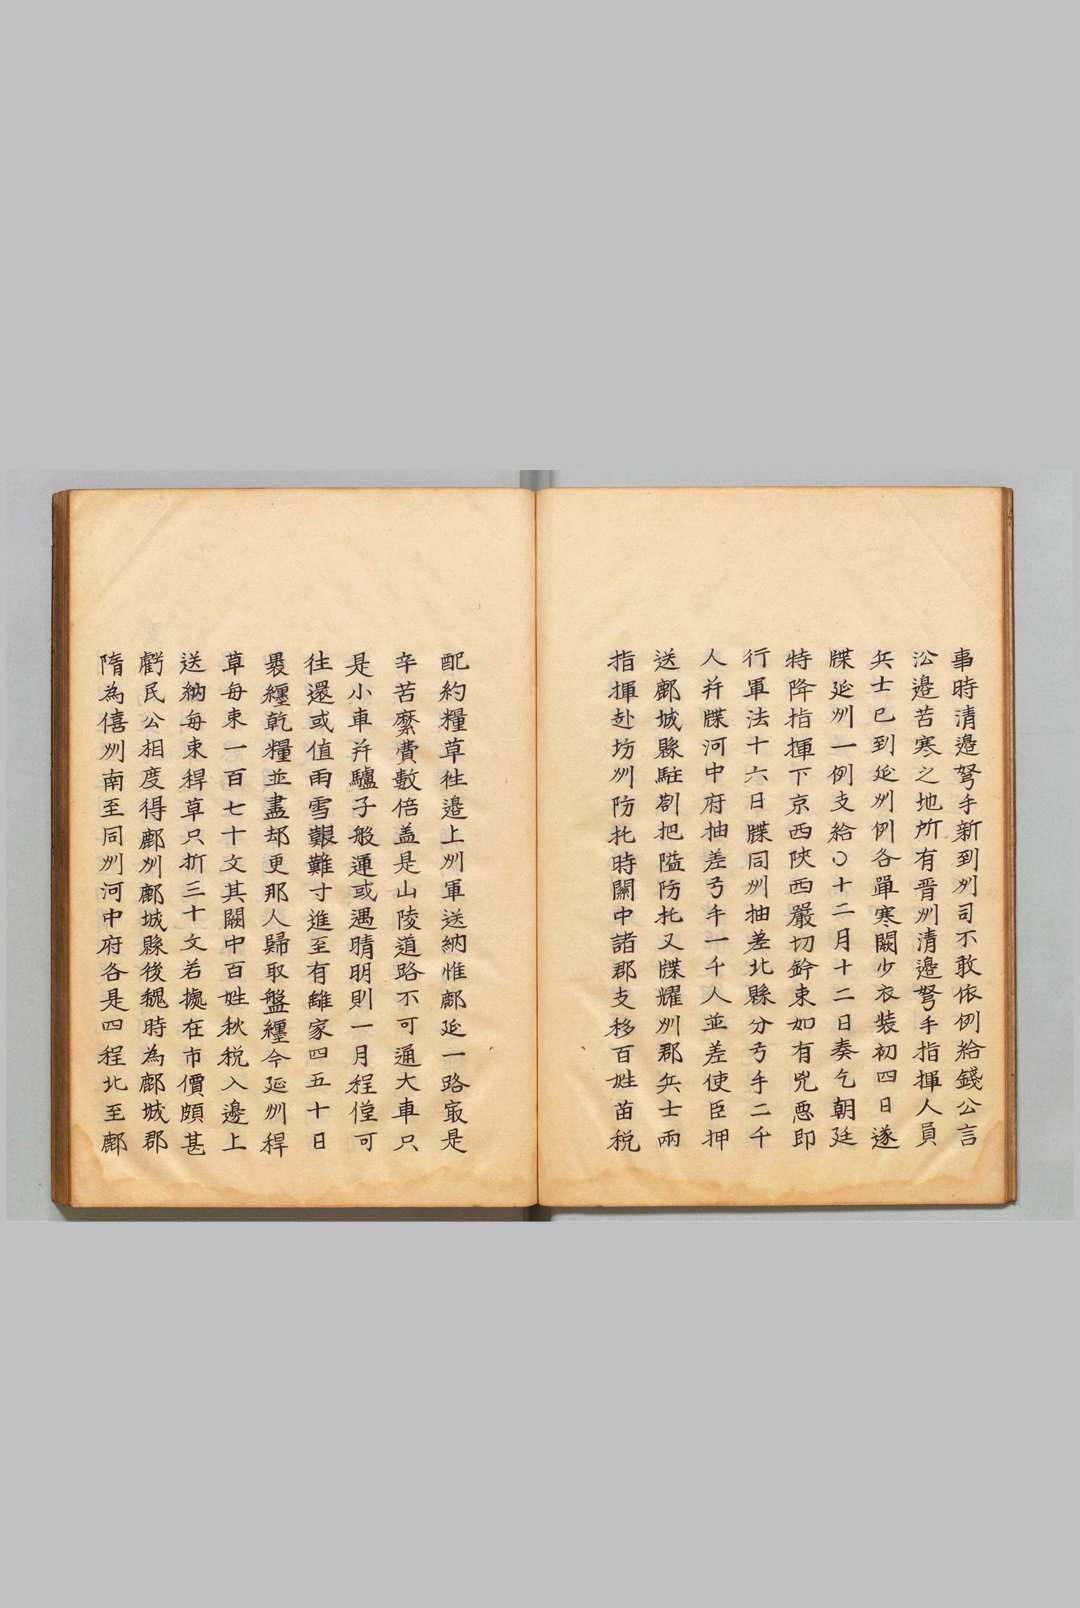 事時清邉弩手新到州司不敢依例給錢公言
沿邉苦寒之地所有晋州清邉弩手指揮人員
兵士已到延州例各單寒闕少衣装初四日遂
牒延州一例支給〇十二月十二日奏乞朝廷
特降指揮下京西陜西嚴切鈐束如有兇悪即
行軍法十六日牒同州抽差北縣分弓手二千
人并牒河中府抽差弓手一千人並差使臣押
送鄜城縣駐劄把隘防托又牒耀州郡兵士兩
指揮赴坊州防托時關中諸郡支移百姓苗税
配約糧草往邉上州軍送納惟鄜延一路㝡是
辛苦縻費數倍盖是山陵道路不可通大車只
是小車并驢子般運或遇晴明則一月程僅可
往還或值雨雪艱難寸進至有離家四五十日
褁纏乾糧並盡却更那人歸取盤纏今延州稈
草每束一百七十文其闕中百姓秋税入邉上
送納每束稈草只折三十文若攙在市價頗甚
虧民公相度得鄜州鄜城縣後魏時為鄜城郡
隋為僖州南至同州河中府各是四程北至鄜